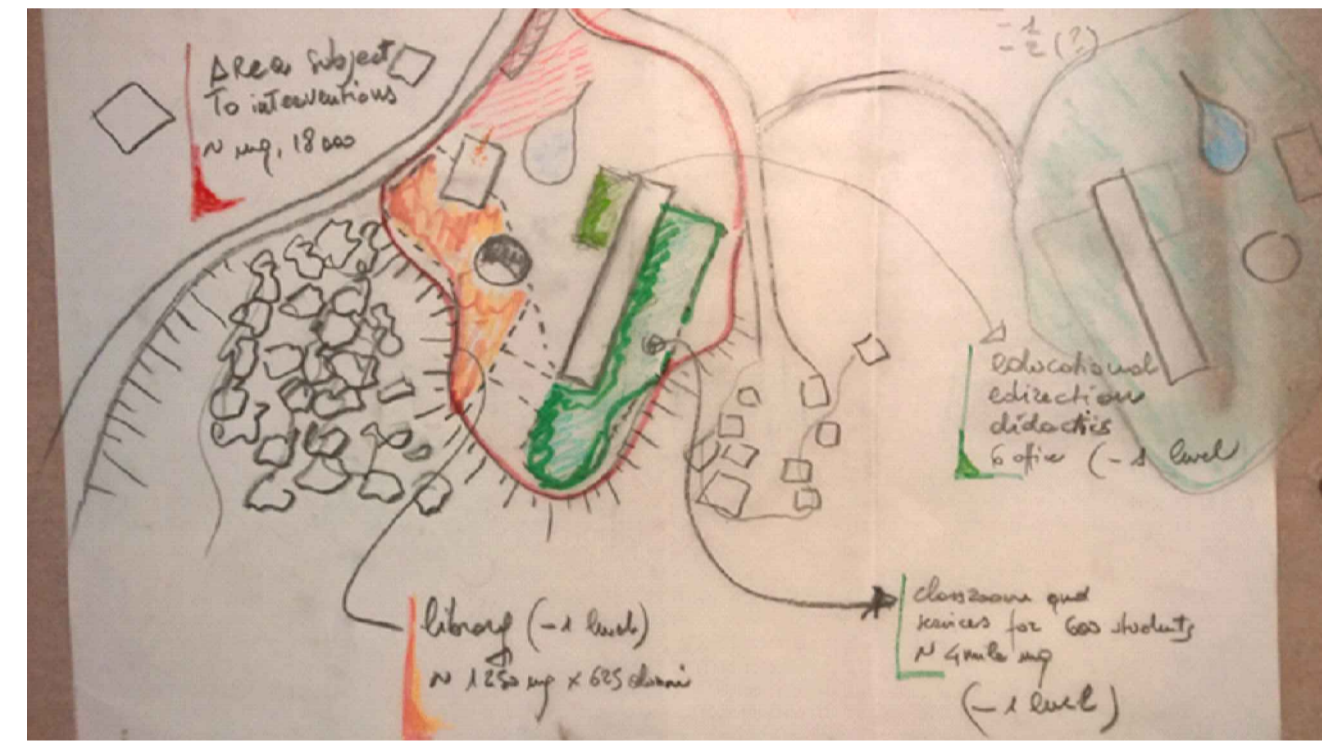 Area subject
To interventions
~ mq. 18000
-1
-2 (?)
educational
edirections
didactics
6 office (-1 level
library (-1 level)
~ 1250 mq x 625 alunni
classroom and
services for 600 students
~ 4mila mq
(-1 level)